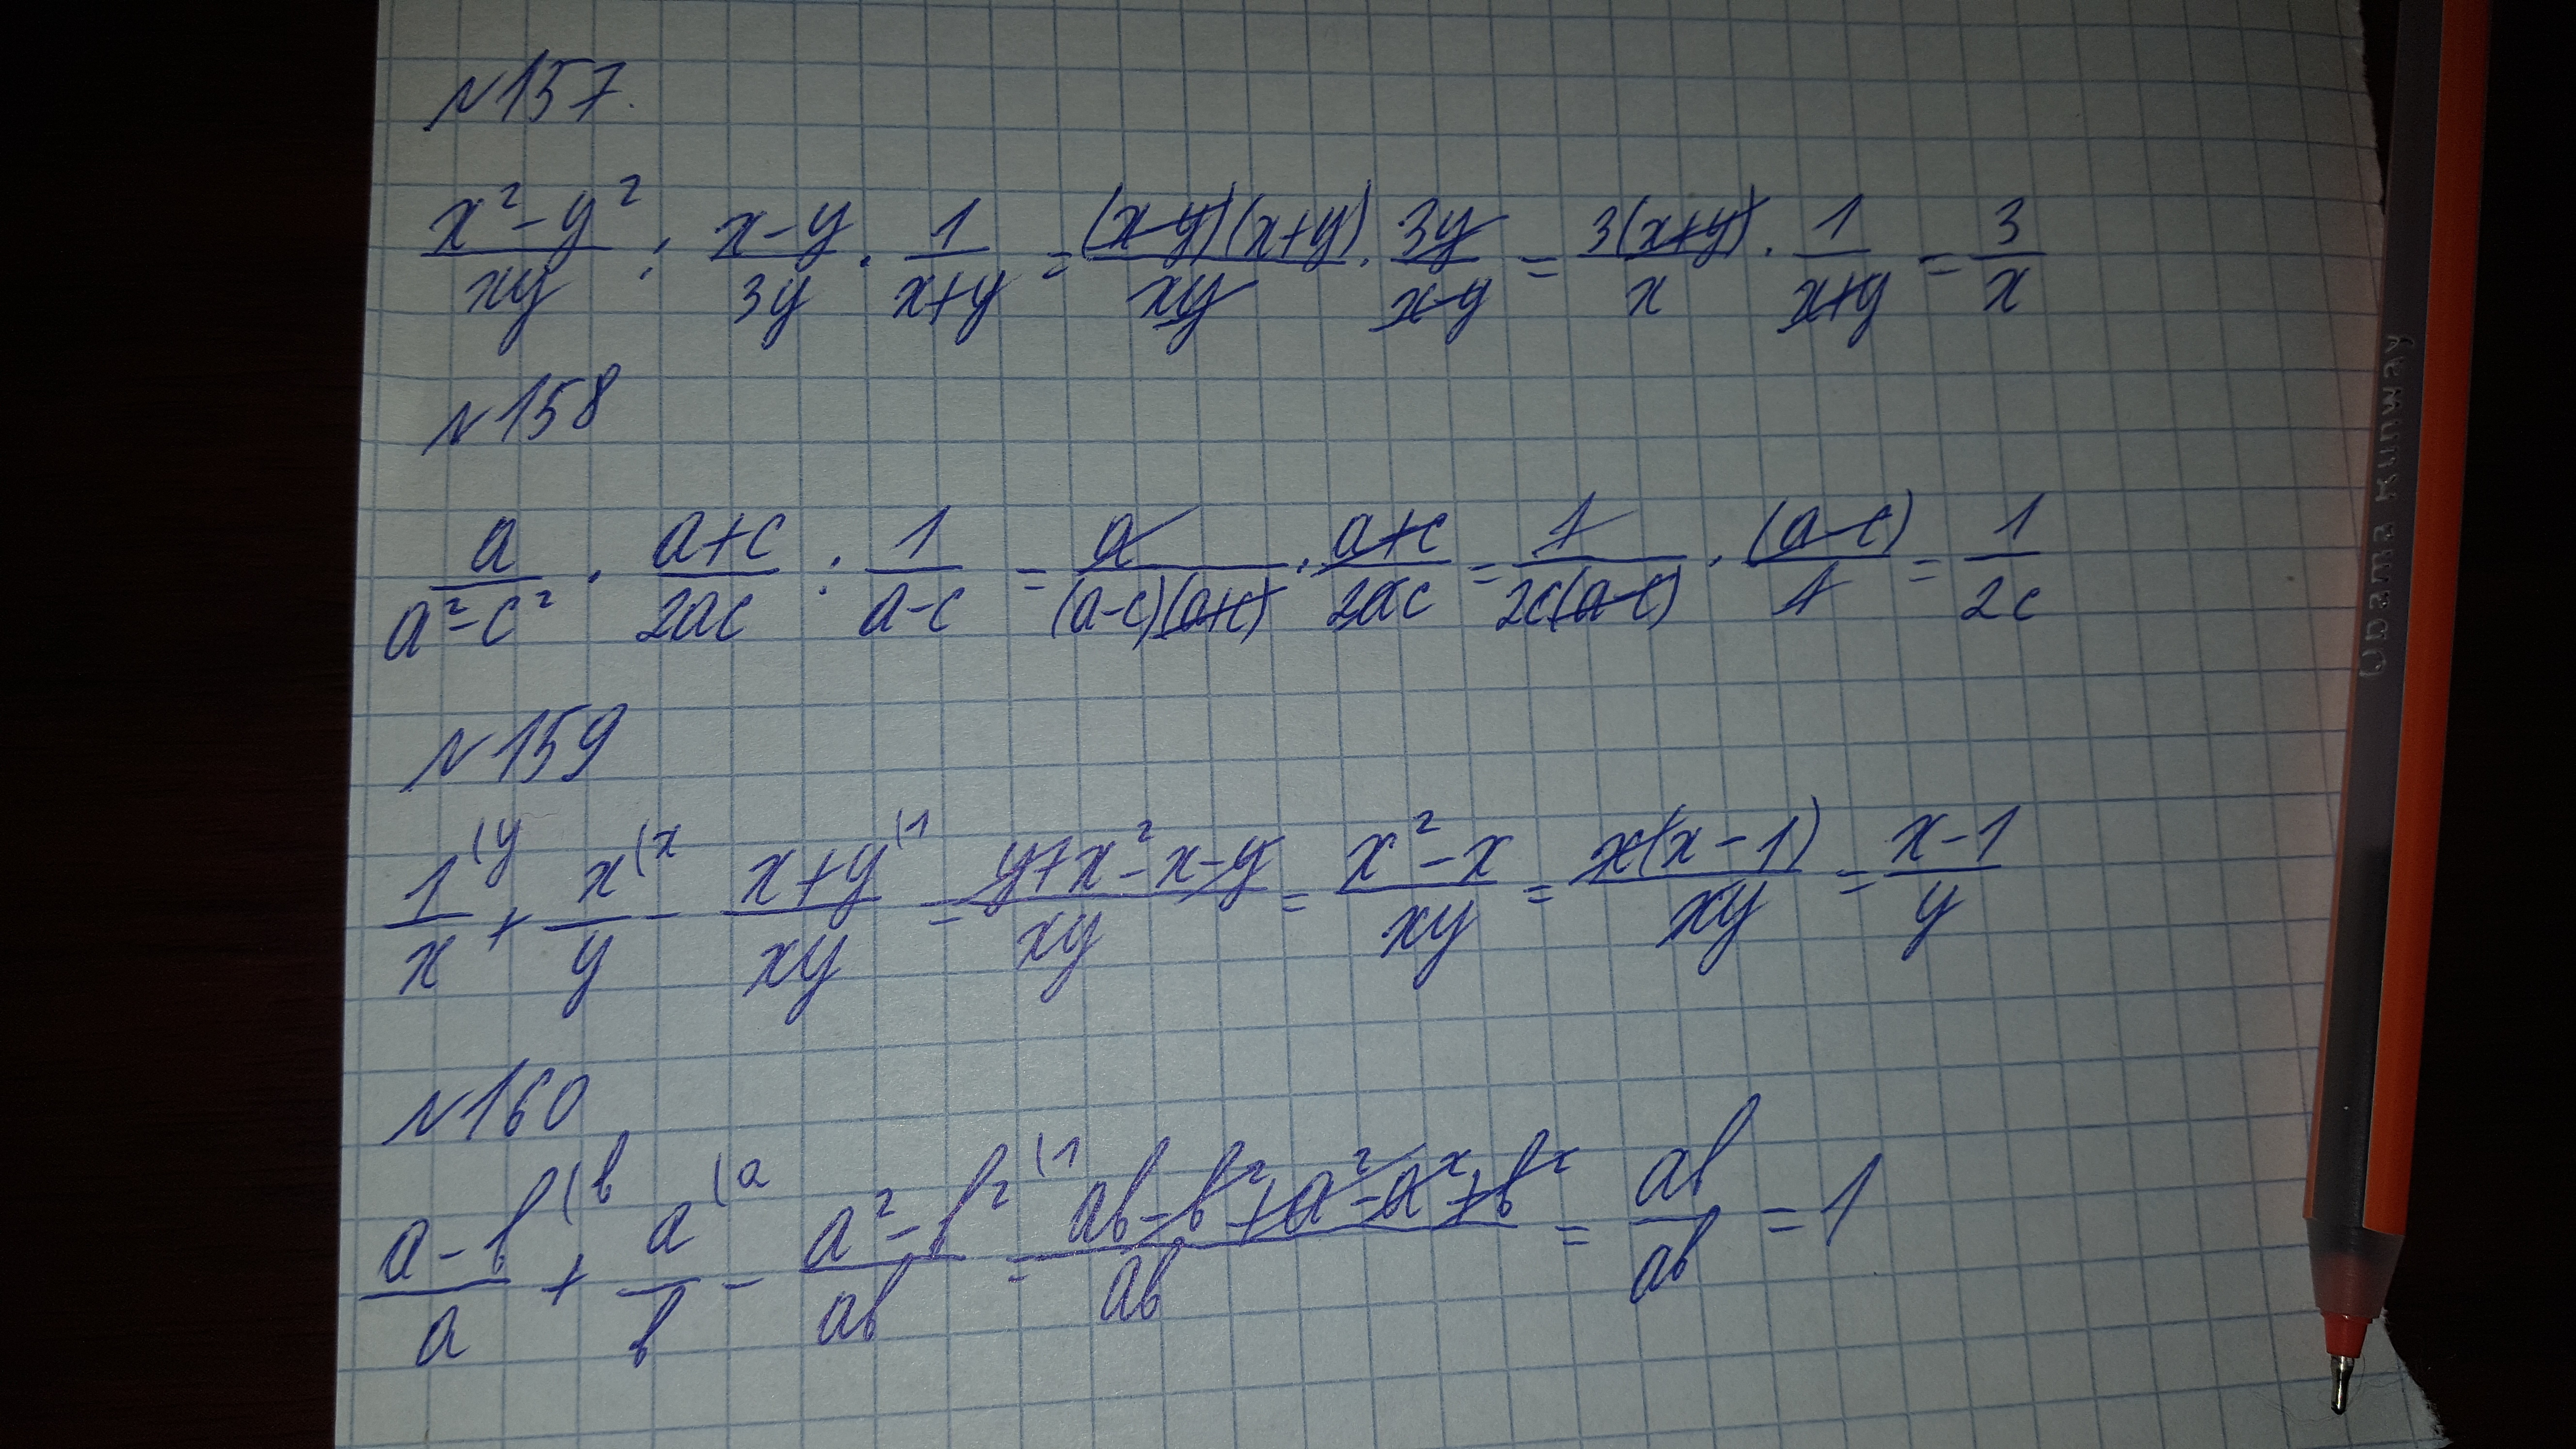 №157.
x²-y²/xy : x-y/3y · 1/x+y = (x-y)(x+y)/xy · 3y/x-y = 3(x+y)/x · 1/x+y = 3/x
№158
a/a²-c² · a+c/2ac : 1/a-c = a/(a-c)(a+c) · a+c/2ac = 1/2c(a-c) · (a-c)/1 = 1/2c
№159
1/x (y + x/y (x - x+y/xy (1 = y+x²-x-y/xy = x²-x/xy = x(x-1)/xy = x-1/y
№160
a-b/a (b + a/b (a - a²-b²/ab (1 = ab-b²+a²-a²+b²/ab = ab/ab = 1